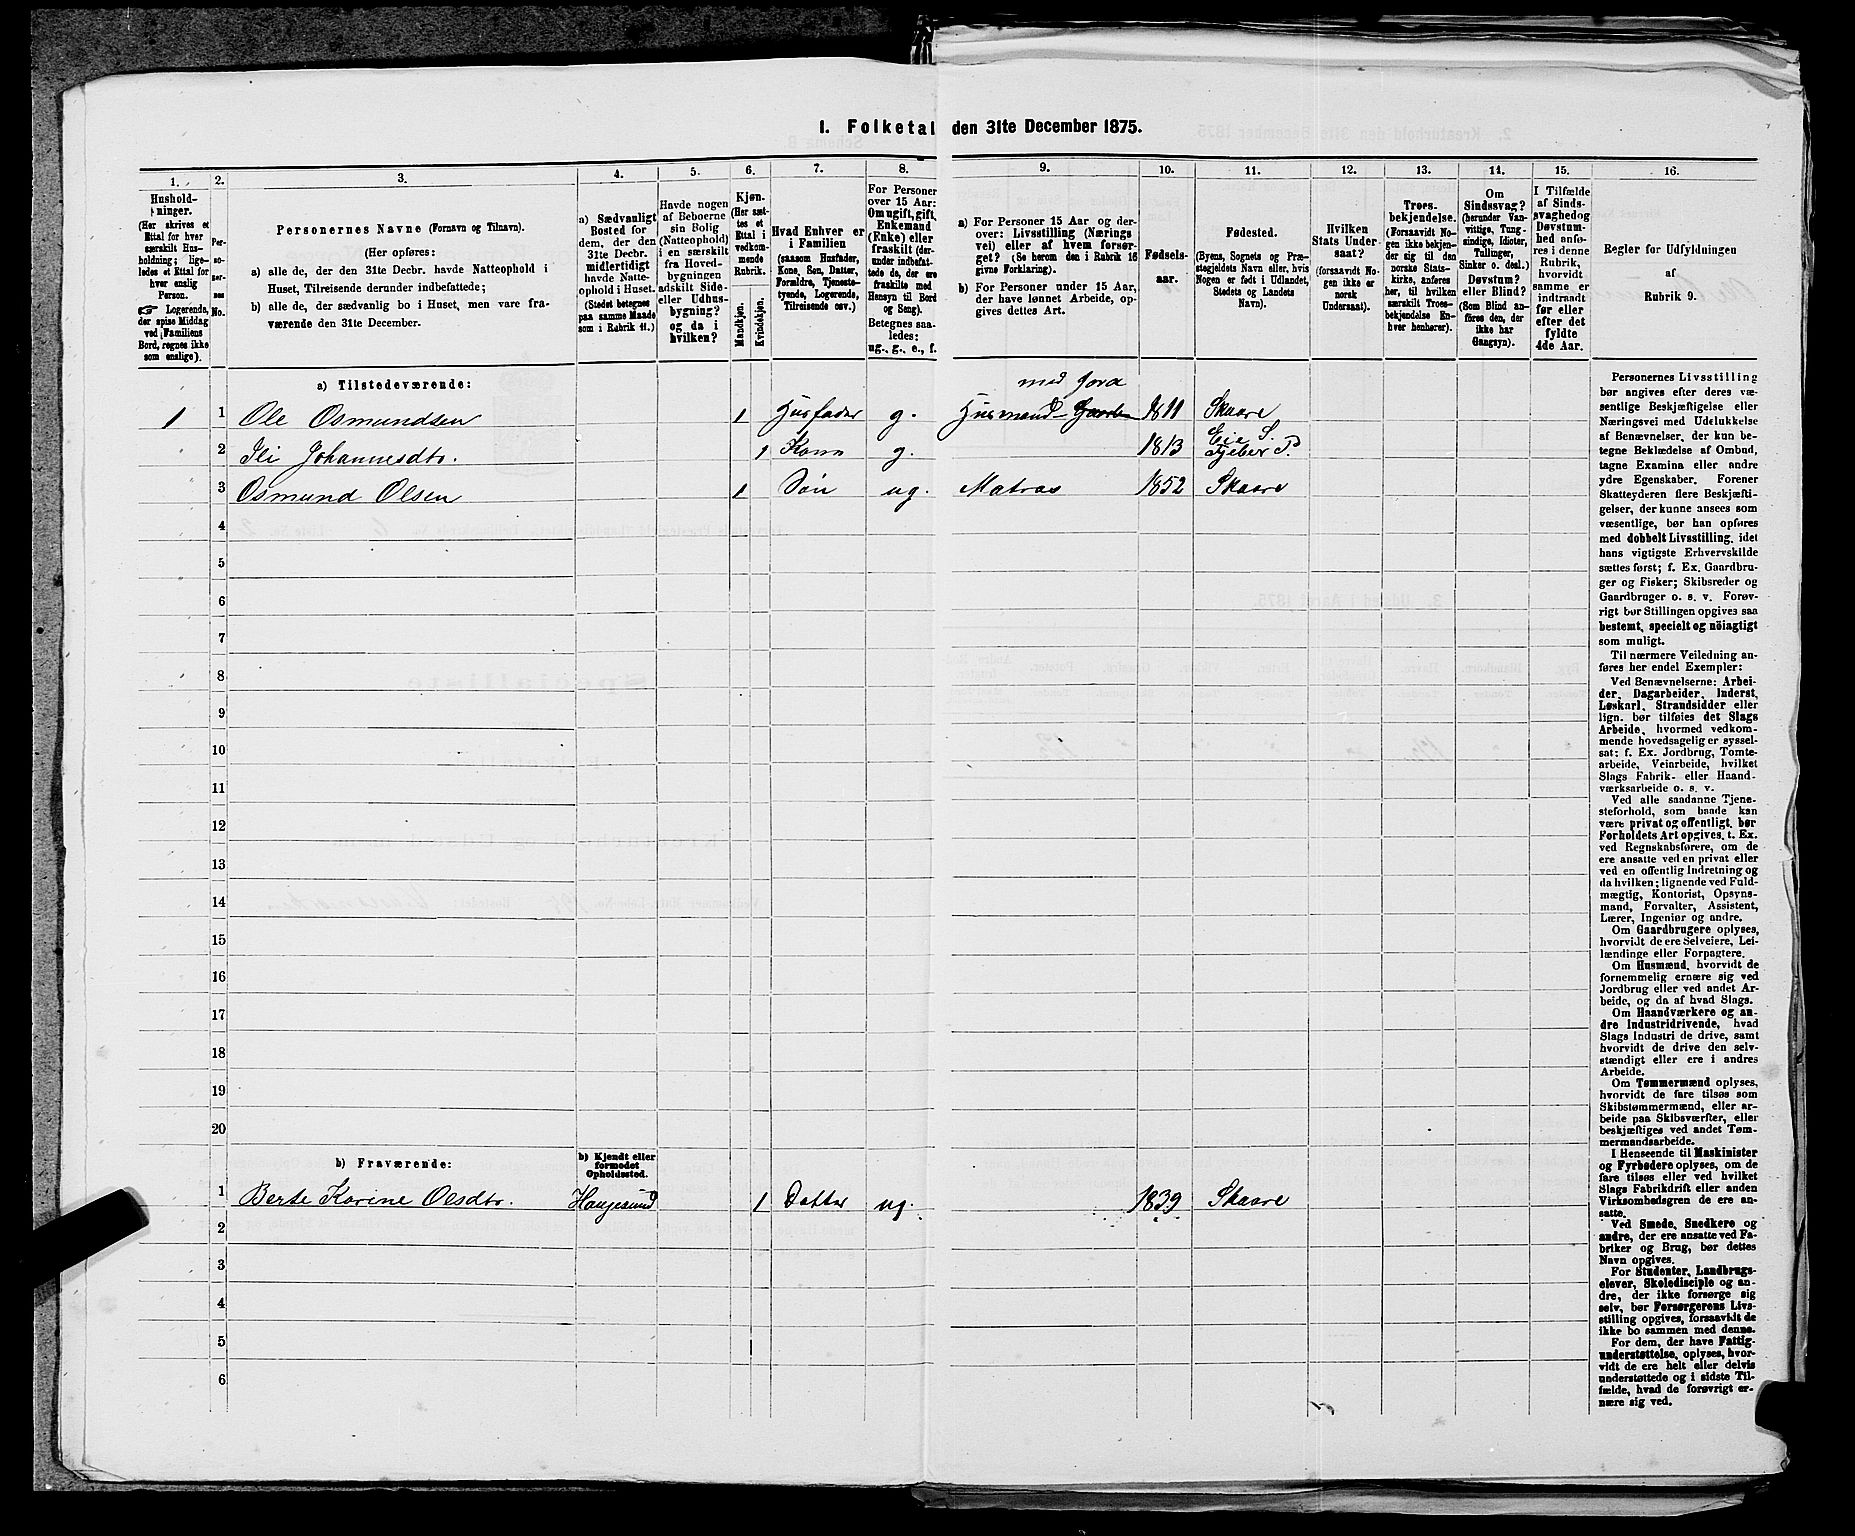 1. Folketal den 31te December 1875.
1. 2. 3. 4. 5. 6. 7. 8. 9. 10. 11. 12. 13. 14. 15. 16.
Hushold-
ninger.
(Her skrives et
Ettal for hver
særskilt Hus-
holdning; lige-
ledes et Ettal for
hver enslig
Person.
☞ Logerende,
der spise Middag
ved Familiens
Bord, regnes ikke
som enslige).
Per-
so-
ner-
nes
No.
Personernes Navne (Fornavn og Tilnavn).
(Her opføres:
a) alle de, der den 31te Decbr. havde Natteophold i
Huset, Tilreisende derunder indbefattede;
b) alle de, der sædvanlig bo i Huset, men vare fra-
værende den 31te December.
a) Sædvanligt
Bosted for
dem, der den
31te Decbr.
midlertidigt
havde Natte-
ophold i Huset.
(Stedet betegnes
paa samme Maade
som i Rubrik 11.)
Havde nogen
af Beboerne
sin Bolig
(Natteophold)
i en særskilt
fra Hoved-
bygningen
adskilt Side-
eller Udhus-
bygning?
og da i
hvilken?
Kjøn.
(Her sæt-
tes et
Ettal i
vedkom-
mende
Rubrik.
Mandkjøn.
Kvindekjøn.
Hvad Enhver er
i Familien
(saasom Husfader,
Kone, Søn, Datter,
Forældre, Tjeneste-
tyende, Logerende,
Tilreisende osv.)
For Personer
over 15 Aar:
Om ugift, gift,
Enkemand
(Enke) eller
fraskilt (der-
under indbefat-
tede de, der ere
fraskilte med
Hensyn til Bord
og Seng).
Betegnes saa-
ledes:
ug., g., e., f.
a) For Personer 15 Aar og der-
over: Livsstilling (Nærings
vei) eller af hvem forsør-
get? (Se herom den i Rubrik 16
givne Forklaring).
b) For Personer under 15 Aar,
der have lønnet Arbeide, op-
gives dettes Art.
Fødsels-
aar.
Fødested.
(Byens, Sognets og Præ-
stegjeldets Navn eller, hvis
Nogen er født i Udlandet,
Stedets og Landets
Navn).
Hvilken
Stats Under-
saat?
(forsaavidt No-
gen ikke er
norsk
Undersaat).
Troes-
bekjendelse.
(Forsaavidt No-
gen ikke bekjen-
der sig til den
norske Stats-
kirke, anføres
her, til hvilken
særskilt Troes-
bekjendelse En-
hver henhører).
Om
Sindssvag?
(herunder Van-
vittige, Tung-
sindige, Idioter,
Tullinger,
Sinker o. desl.)
Døvstum?
eller Blind?
(Som Blind an-
føres den, der
ikke har
Gangsyn).
I Tilfælde
af Sinds-
svaghed og
Døvstum-
hed anfø-
res i denne
Rubrik,
hvorvidt
samme er
indtraadt
før eller
efter det
fyldte
4de Aar.
Regler for Udfyldningen
af
Rubrik 9.
a) Tilstedeværende:
med Jord
1 1 Ole Osmundsen 1 Husfader g. Husmand 1811 Skaare
Eie S.
2 Ili Johannesdtr. 1 Kone g. 1813 Tjeber P.
3 Osmund Olsen 1 Søn ug. Matros 1852 Skaare
4
5
6
7
8
9
10
11
12
13
14
15
16
17
18
19
20
b) Fraværende:
b) Kjendt eller
formodet
Opholdssted.
1 Berte Karine Olsdtr. Haugesund 1 Datter ug. 1839 Skaare
2
3
4
5
6
Personernes Livsstilling
bør angives efter deres væ-
sentlige Beskjæftigelse eller
Næringsvei med Udelukkelse
af Benævnelser, der kun be-
tegne Beklædelse af Ombud,
tagne Examina eller andre
ydre Egenskaber. Forener
Skatteyderen flere Beskjæfti-
gelser, der kunne ansees som
væsentlige, bør han opføres
med dobbelt Livsstilling, idet
hans vigtigste Erhvervskilde
sættes først; f. Ex. Gaardbru-
ger og Fisker; Skibsreder og
Gaardbruger o. s. v. Forøv-
rigt bør Stillingen opgives saa
bestemt, specielt og nöiagtigt
som muligt.
Til nærmere Veiledning an-
føres her endel Exempler:
Ved Benævnelserne: Arbei-
der, Dagarbeider, Inderst,
Løskarl, Strandsidder eller
lign. bør tilføies det Slags
Arbeide, hvormed vedkom-
mende hovedsagelig er syssel-
sat: f. Ex. Jordbrug, Tomte-
arbeide, Veiarbeide, hvilket
Slags Fabrik- eller Haand-
værksarbeide o. s. v.
Ved alle saadanne Tjene-
steforhold, som baade kan
være privat og offentligt, bør
Forholdets Art opgives, t. Ex.
ved Regnskabsførere, om de
ere ansatte ved en privat eller
ved en offentlig Indretning og
da hvilken; lignende ved Fuld-
mægtig, Kontorist, Opsyns-
mand, Forvalter, Assistent,
Lærer, Ingeniør og andre.
Om Gaardbrugere oplyses,
hvorvidt de ere Selveiere, Lei-
lændinge eller Forpagtere.
Om Husmænd, hvorvidt de
fornemmelig ernære sig ved
Jordbrug eller ved andet Ar-
beide, og da af hvad Slags.
Om Haandværkere og an-
dre Industridrivende, hvad
Slags Industri de drive, samt
hvorvidt de drive den selv-
stændigt eller ere i andres
Arbeide.
Om Tømmermænd oplyses,
hvorvidt de fare tilsøs som
Skibstømmermænd, eller ar-
beide paa Skibsværfter, eller
beskjæftiges ved andet Tøm-
mermandsarbeide.
I Henseende til Maskinister
og Fyrbødere oplyses, om de
fare tilsøs eller ved hvilket
Slags Fabrikdrift eller anden
Virksomhedsgren de ere an-
satte.
Ved Smede, Snedkere og
andre, der ere ansatte ved Fa-
briker og Brug, bør dettes
Navn opgives.
For Studenter, Landbrugs-
elever, Skoledisciple og an-
dre, der ikke forsørge sig
selv, bør Forsørgerens Livs-
stilling opgives, forsaavidt de
ikke bo sammen med denne.
For dem, der have Fattig-
understøttelse, oplyses, hvor-
vidt de ere helt eller delvis
understøttede og i sidste Til-
fælde, hvad de forøvrigt er-
nære sig ved.